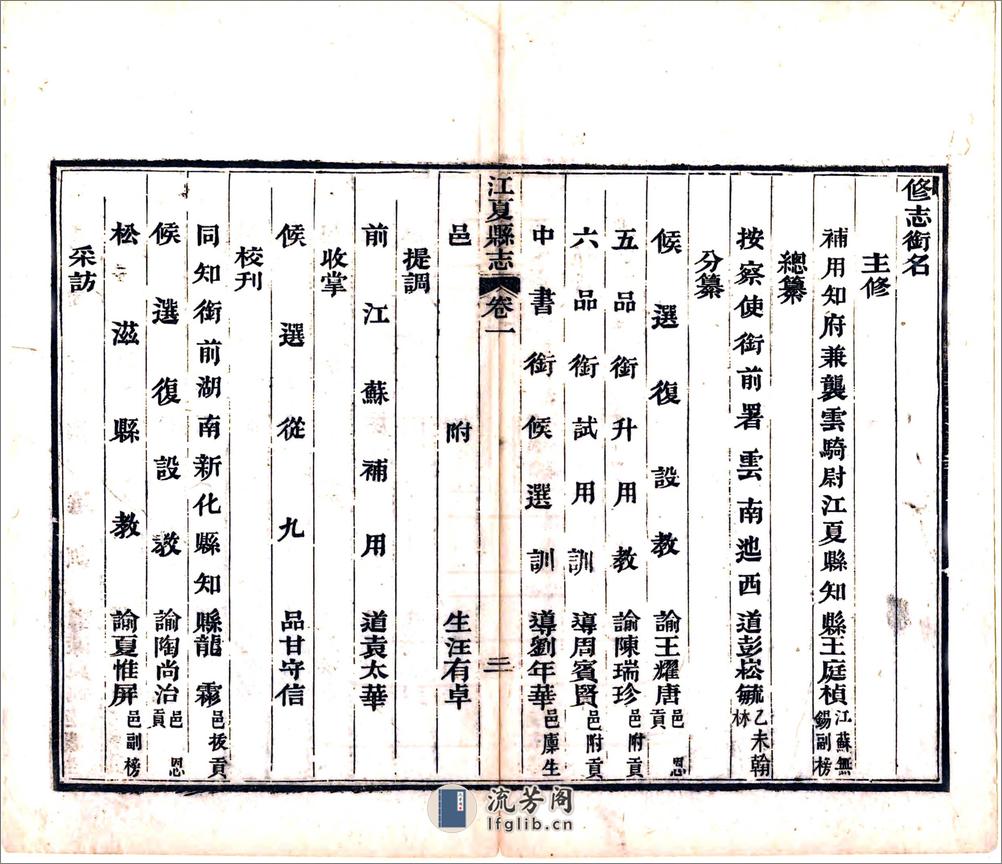 修志銜名
主修
補用知府兼襲雲騎尉江夏縣知縣王庭楨江蘇無錫副榜
總纂
按察使銜前署雲南迆西道彭崧毓乙未翰林
分纂
候選復設教諭王耀唐邑恩貢
五品銜升用教諭陳瑞珍邑附貢
六品銜試用訓導周賓賢邑附貢
中書銜候選訓導劉年華邑廩生
江夏縣志 卷一 三
邑附生汪有卓
提調
前江蘇補用道袁太華
收掌
候選從九品甘守信
校刊
同知銜前湖南新化縣知縣龍霖邑拔貢
候選復設教諭陶尚治邑恩貢
松滋縣教諭夏惟屏邑副榜
采訪
流芳阁
lfglib.cn